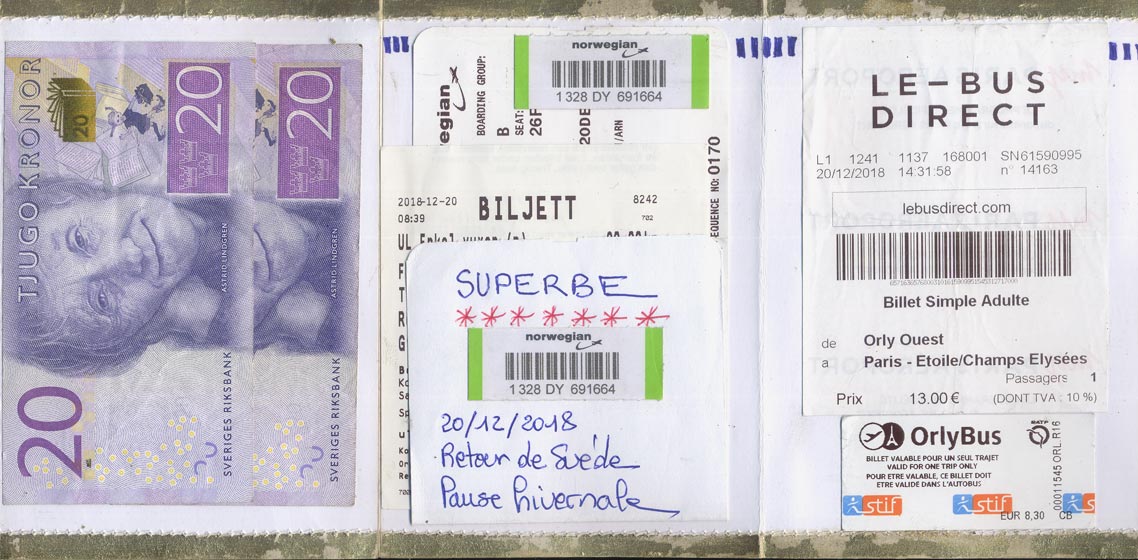 TJUGO KRONOR
20
20
ASTRID LINDGREN
SVERIGES RIKSBANK
20
20
ASTRID LINDGREN
SVERIGES RIKSBANK
norwegian
1 328 DY 691664
egian
BOARDING GROUP:
B
SEAT:
26F
20DE
/ARN
EQUENCE NO: 0170
2018-12-20 BILJETT 8242
08:39 702
UL Enkel vuxen
SUPERBE
*******
norwegian
1 328 DY 691664
20/12/2018
Retour de Suède
Pause hivernale
LE-BUS
DIRECT
L1 1241 1137 168001 SN61590995
20/12/2018 14:31:58 n° 14163
lebusdirect.com
Billet Simple Adulte
de Orly Ouest
a Paris - Etoile/Champs Elysées
Passagers 1
Prix 13.00 € (DONT TVA : 10 %)
OrlyBus
RATP
BILLET VALABLE POUR UN SEUL TRAJET
VALID FOR ONE TRIP ONLY
POUR ETRE VALABLE, CE BILLET DOIT
ETRE VALIDÉ DANS L'AUTOBUS
stif stif s
EUR 8,30 CB
00011545 ORL R16